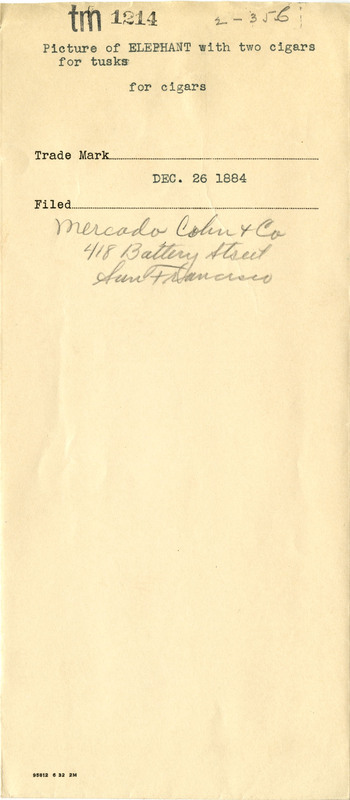 tm 1214 2-356
Picture of ELEPHANT with two cigars
for tusks
for cigars
Trade Mark
DEC. 26 1884
Filed
Mercado Cohn & Co
418 Battery Street
San Francisco
95612 6 32 2M